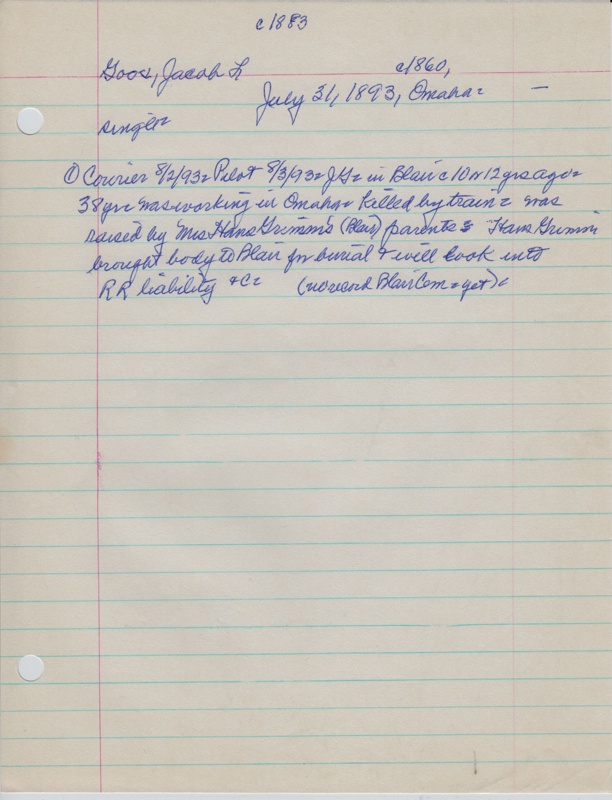 c1883
Goos, Jacob L c1860,
July 31, 1893, Omaha= —
single=
① Courier 8/2/93= Pilot 8/3/93= JG= in Blair c10 or 12 yrs ago=
38 yr= was working in Omaha= killed by train= was
raised by Mrs Hans Grimm's (Blair) parents= Hans Grimm
brought body to Blair for burial & will look into
RR liability &C= (no record Blair Cem= yet)=